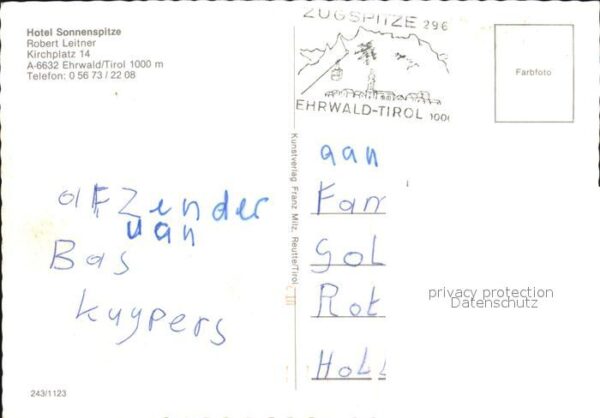 Hotel Sonnenspitze
Robert Leitner
Kirchplatz 14
A-6632 Ehrwald/Tirol 1000 m
Telefon: 0 56 73 / 22 08
ZUGSPITZE 296
EHRWALD-TIROL 100
Farbfoto
Kunstverlag Franz Milz, Reutte/Tirol
afzender
van
Bas
kuypers
aan
Fam
Gol
Rot
Holl
privacy protection
Datenschutz
243/1123